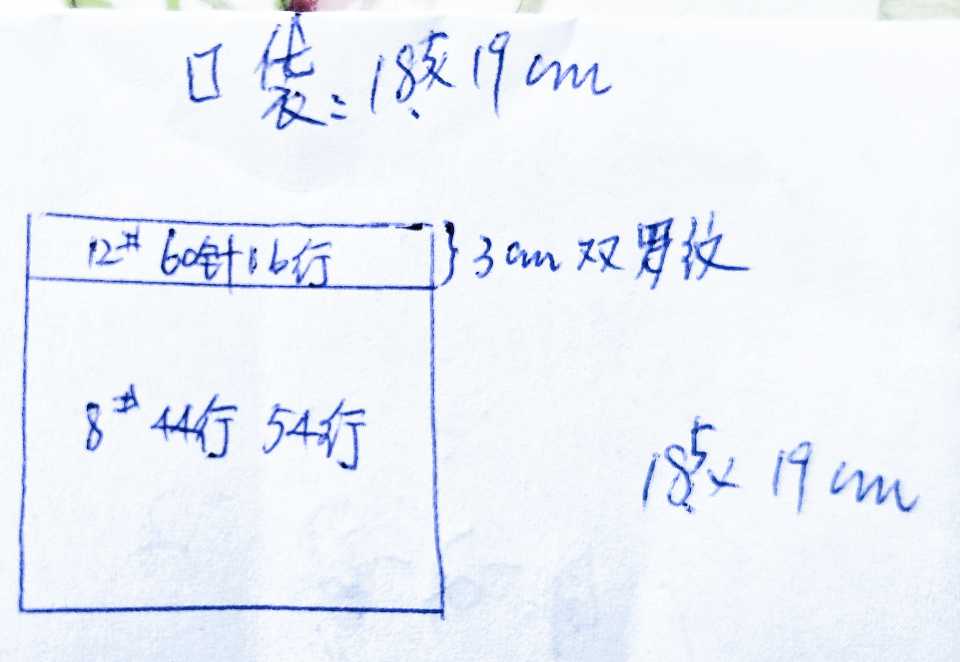 口袋:18.5×19cm
12# 60针16行
}3cm双罗纹
8# 44行 54行
18.5×19cm